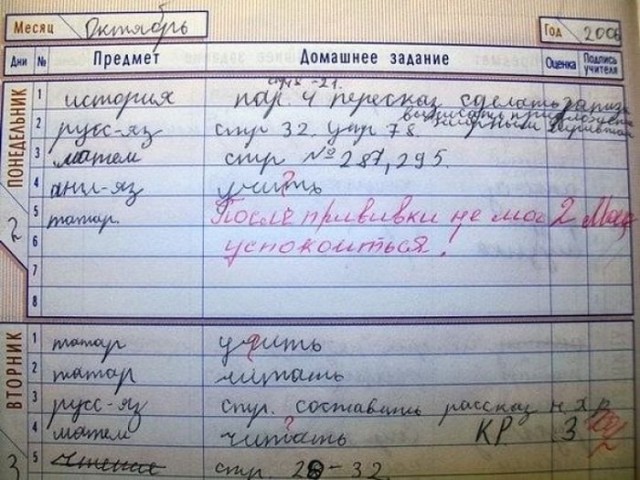 Месяц Октябрь Год 2006
Дни № Предмет Домашнее задание Оценка Подпись учителя
ПОНЕДЕЛЬНИК
2
стр -21.
1 история пар. 4 пересказ сделать
2 русс-яз стр 32. упр 78
3 матем стр № 287, 295.
4 анг-яз учить
?
5 татар. После прививки не мог 2
6 успокоиться!
7
8
ВТОРНИК
3
1 татар учить
2 татар читать
3 русс-яз стр. составить рассказ
?
4 матем читать КР 3
5 чтение стр. 28-32